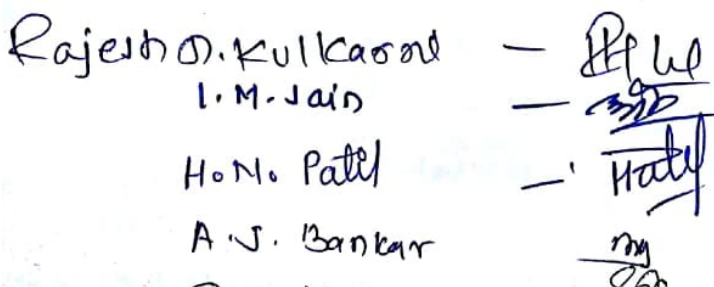 Rajesh D. Kulkarni –
I. M. Jain –
H. N. Patil –
A. J. Bankar